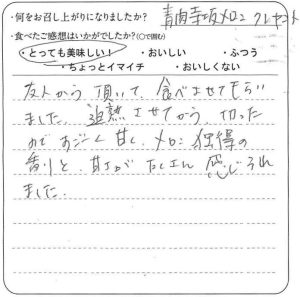 ・何をお召し上がりになりましたか？ 青肉幸坂メロン クレセント
・食べたご感想はいかがでしたか？(○で囲む)
・とっても美味しい！ ・おいしい ・ふつう
・ちょっとイマイチ ・おいしくない
友人から頂いて、食べさせてもらい
ました。追熟させてから、切った
のですごく甘く、メロン独得の
香りと、甘さがたくさん感じられ
ました。